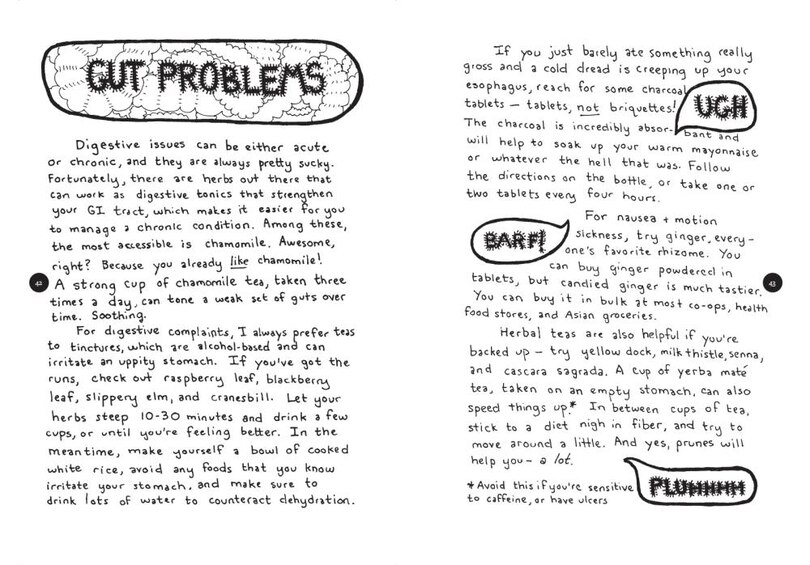 GUT PROBLEMS
Digestive issues can be either acute
or chronic, and they are always pretty sucky.
Fortunately, there are herbs out there that
can work as digestive tonics that strengthen
your GI tract, which makes it easier for you
to manage a chronic condition. Among these,
the most accessible is chamomile. Awesome,
right? Because you already like chamomile!
A strong cup of chamomile tea, taken three
times a day, can tone a weak set of guts over
time. Soothing.
For digestive complaints, I always prefer teas
to tinctures, which are alcohol-based and can
irritate an uppity stomach. If you've got the
runs, check out raspberry leaf, blackberry
leaf, slippery elm, and cranesbill. Let your
herbs steep 10-30 minutes and drink a few
cups, or until you're feeling better. In the
meantime, make yourself a bowl of cooked
white rice, avoid any foods that you know
irritate your stomach, and make sure to
drink lots of water to counteract dehydration.
42
If you just barely ate something really
gross and a cold dread is creeping up your
esophagus, reach for some charcoal
tablets – tablets, not briquettes!
UGH
The charcoal is incredibly absor- bant and
will help to soak up your warm mayonnaise
or whatever the hell that was. Follow
the directions on the bottle, or take one or
two tablets every four hours.
BARF!
For nausea + motion
sickness, try ginger, every-
one's favorite rhizome. You
can buy ginger powdered in
tablets, but candied ginger is much tastier.
You can buy it in bulk at most co-ops, health
food stores, and Asian groceries.
Herbal teas are also helpful if you're
backed up – try yellow dock, milk thistle, senna,
and cascara sagrada. A cup of yerba maté
tea, taken on an empty stomach, can also
speed things up.* In between cups of tea,
stick to a diet high in fiber, and try to
move around a little. And yes, prunes will
help you – a lot.
PLUHHHH
* Avoid this if you're sensitive
to caffeine, or have ulcers
43